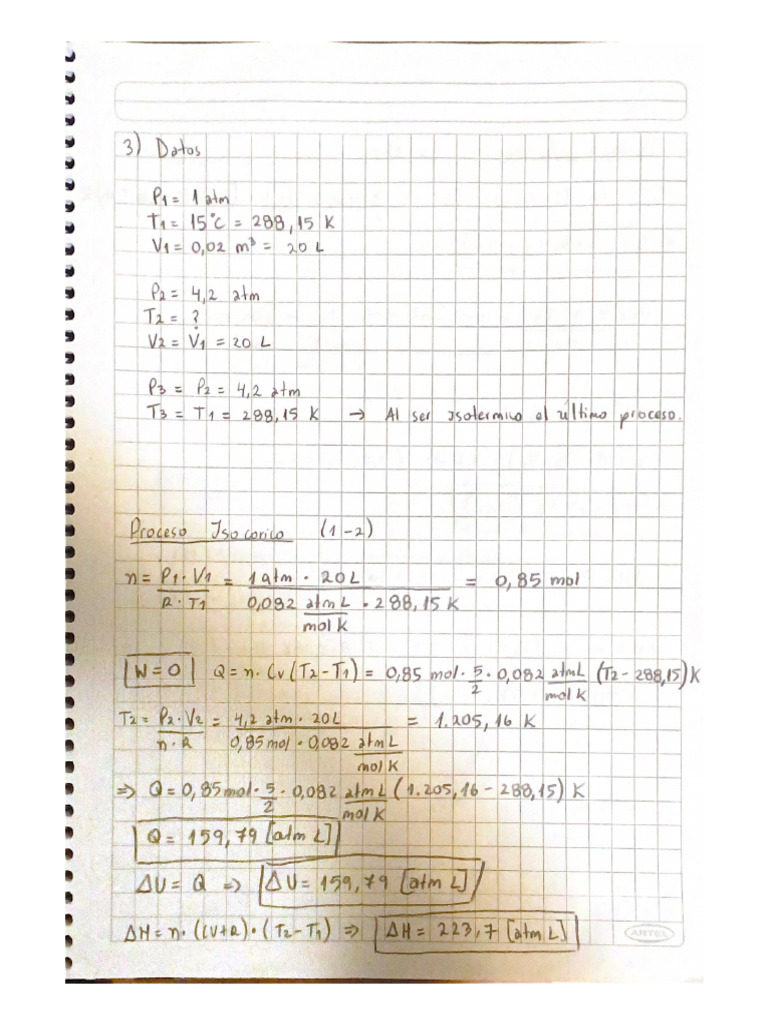 3) Datos
P1 = 1 atm
T1 = 15°C = 288,15 K
V1 = 0,02 m³ = 20 L
P2 = 4,2 atm
T2 = ?
V2 = V1 = 20 L
P3 = P2 = 4,2 atm
T3 = T1 = 288,15 K → Al ser isotermico el último proceso.
Proceso Isocorico (1-2)
n = P1 · V1 / R · T1 = 1 atm · 20 L / 0,082 atm L / mol K · 288,15 K = 0,85 mol
W = 0 Q = n · Cv (T2 - T1) = 0,85 mol · 5/2 · 0,082 atm L / mol K (T2 - 288,15) K
T2 = P2 · V2 / n · R = 4,2 atm · 20 L / 0,85 mol · 0,082 atm L / mol K = 1.205,16 K
⇒ Q = 0,85 mol · 5/2 · 0,082 atm L / mol K (1.205,16 - 288,15) K
Q = 159,79 [atm L]
ΔU = Q ⇒ ΔU = 159,79 [atm L]
ΔH = n · (Cv + R) · (T2 - T1) ⇒ ΔH = 223,7 [atm L]
ARTEL